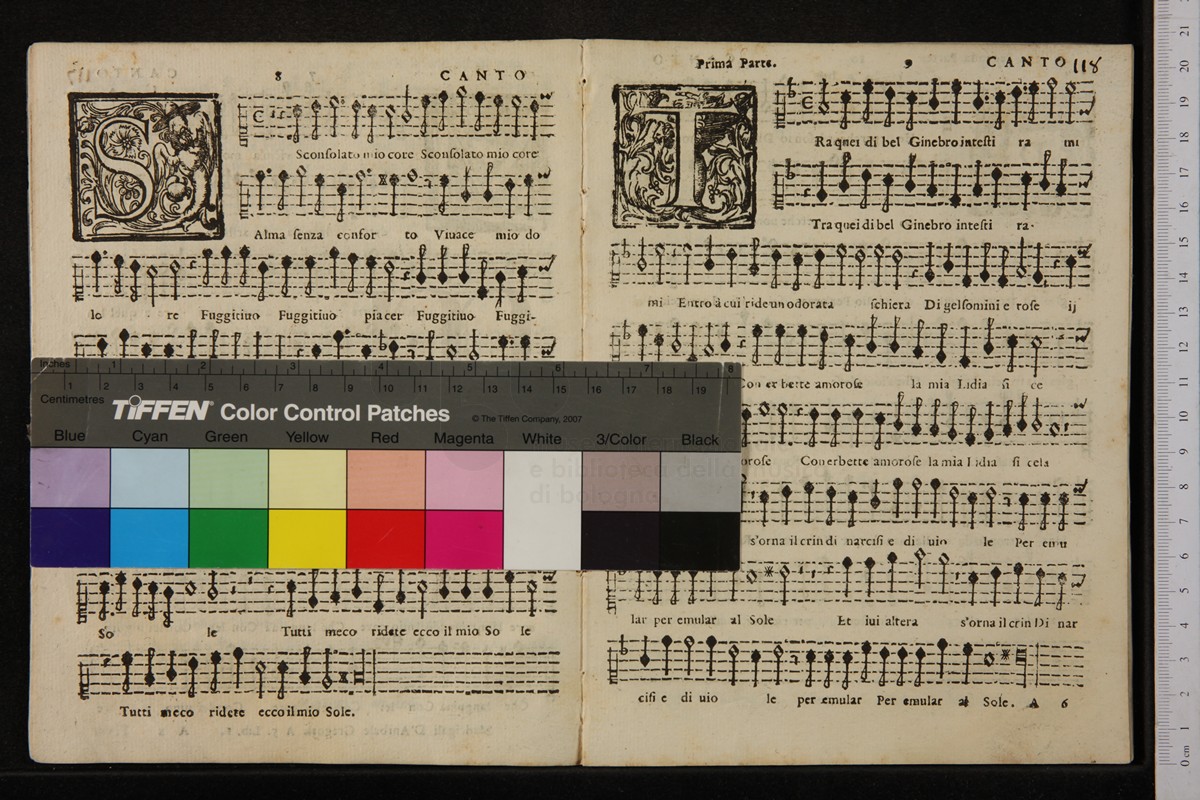 8 CANTO
S
Sconsolato mio core Sconsolato mio core
Alma senza confor to Viuace mio do
lo re Fuggitiuo Fuggitiuo piacer Fuggitiuo Fuggi-
So le Tutti meco ridete ecco il mio So le
Tutti meco ridete ecco il mio Sole.
Prima Parte. 9 CANTO 118
T
Ra quei di bel Ginebro intesti ra mi
Tra quei di bel Ginebro intesti ra-
mi Entro à cui ride un odorata schiera Di gelsomini e rose ij
Con erbette amorose la mia Lidia si ce
orose Con erbette amorose la mia Lidia si cela
s'orna il crin di narcisi e di uio le Per emu
lar per emular al Sole Et iui altera s'orna il crin Di nar
cisi e di uio le per emular Per emular al Sole. A 6
Inches 1 2 3 4 5 6 7 8
Centimetres 1 2 3 4 5 6 7 8 9 10 11 12 13 14 15 16 17 18 19
TIFFEN® Color Control Patches © The Tiffen Company, 2007
Blue Cyan Green Yellow Red Magenta White 3/Color Black
e biblioteca della musica
di bologna
21
20
19
18
17
16
15
14
13
12
11
10
9
8
7
6
5
4
3
2
1
0 cm